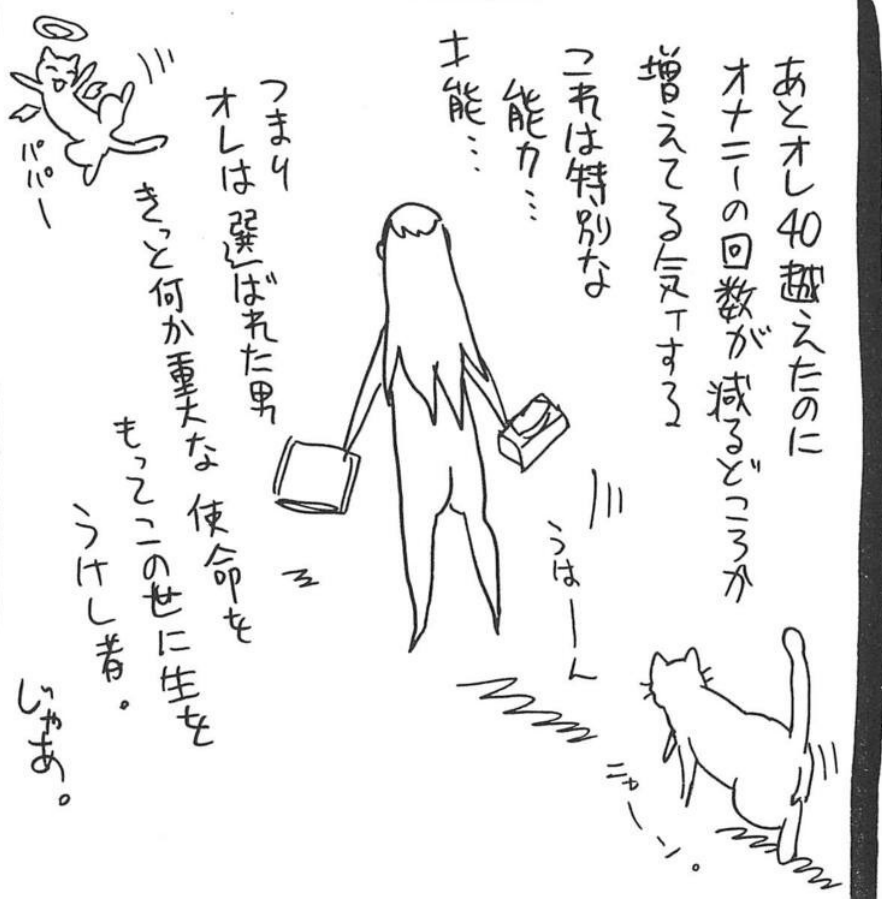 あとオレ40越えたのに
オナニーの回数が減るどころか
増えてる気ィする
これは特別な
能力…
才能…
つまり
オレは選ばれた男
きっと何か重大な使命を
もってこの世に生を
うけし者。
じゃあ。
パパー
うはーん
ニャーン。